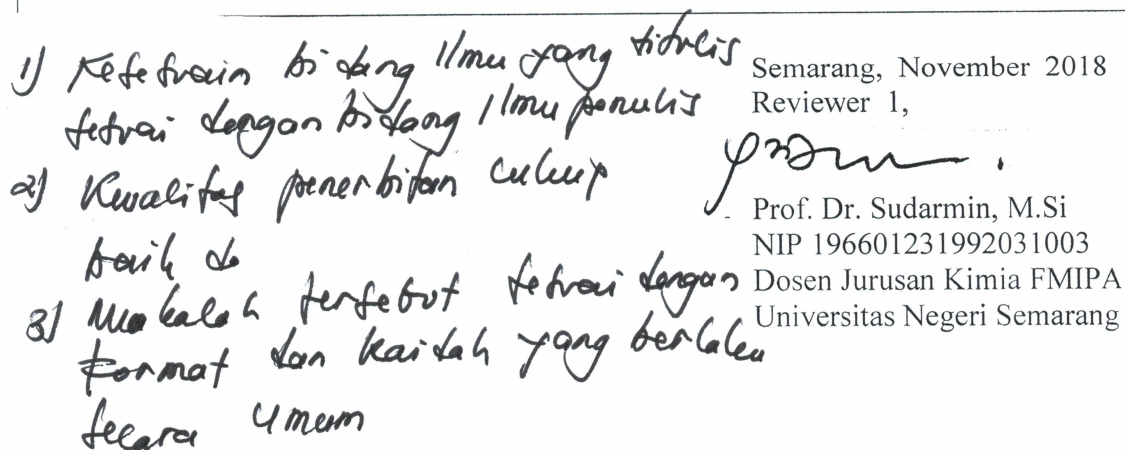 1) Kesesuain bidang Ilmu yang ditulis
sesuai dengan bidang Ilmu penulis
2) Kwalitas penerbitan cukup
baik
3) Makalah tersebut sesuai dengan
format dan kaidah yang berlaku
secara Umum
Semarang, November 2018
Reviewer 1,
Prof. Dr. Sudarmin, M.Si
NIP 196601231992031003
Dosen Jurusan Kimia FMIPA
Universitas Negeri Semarang